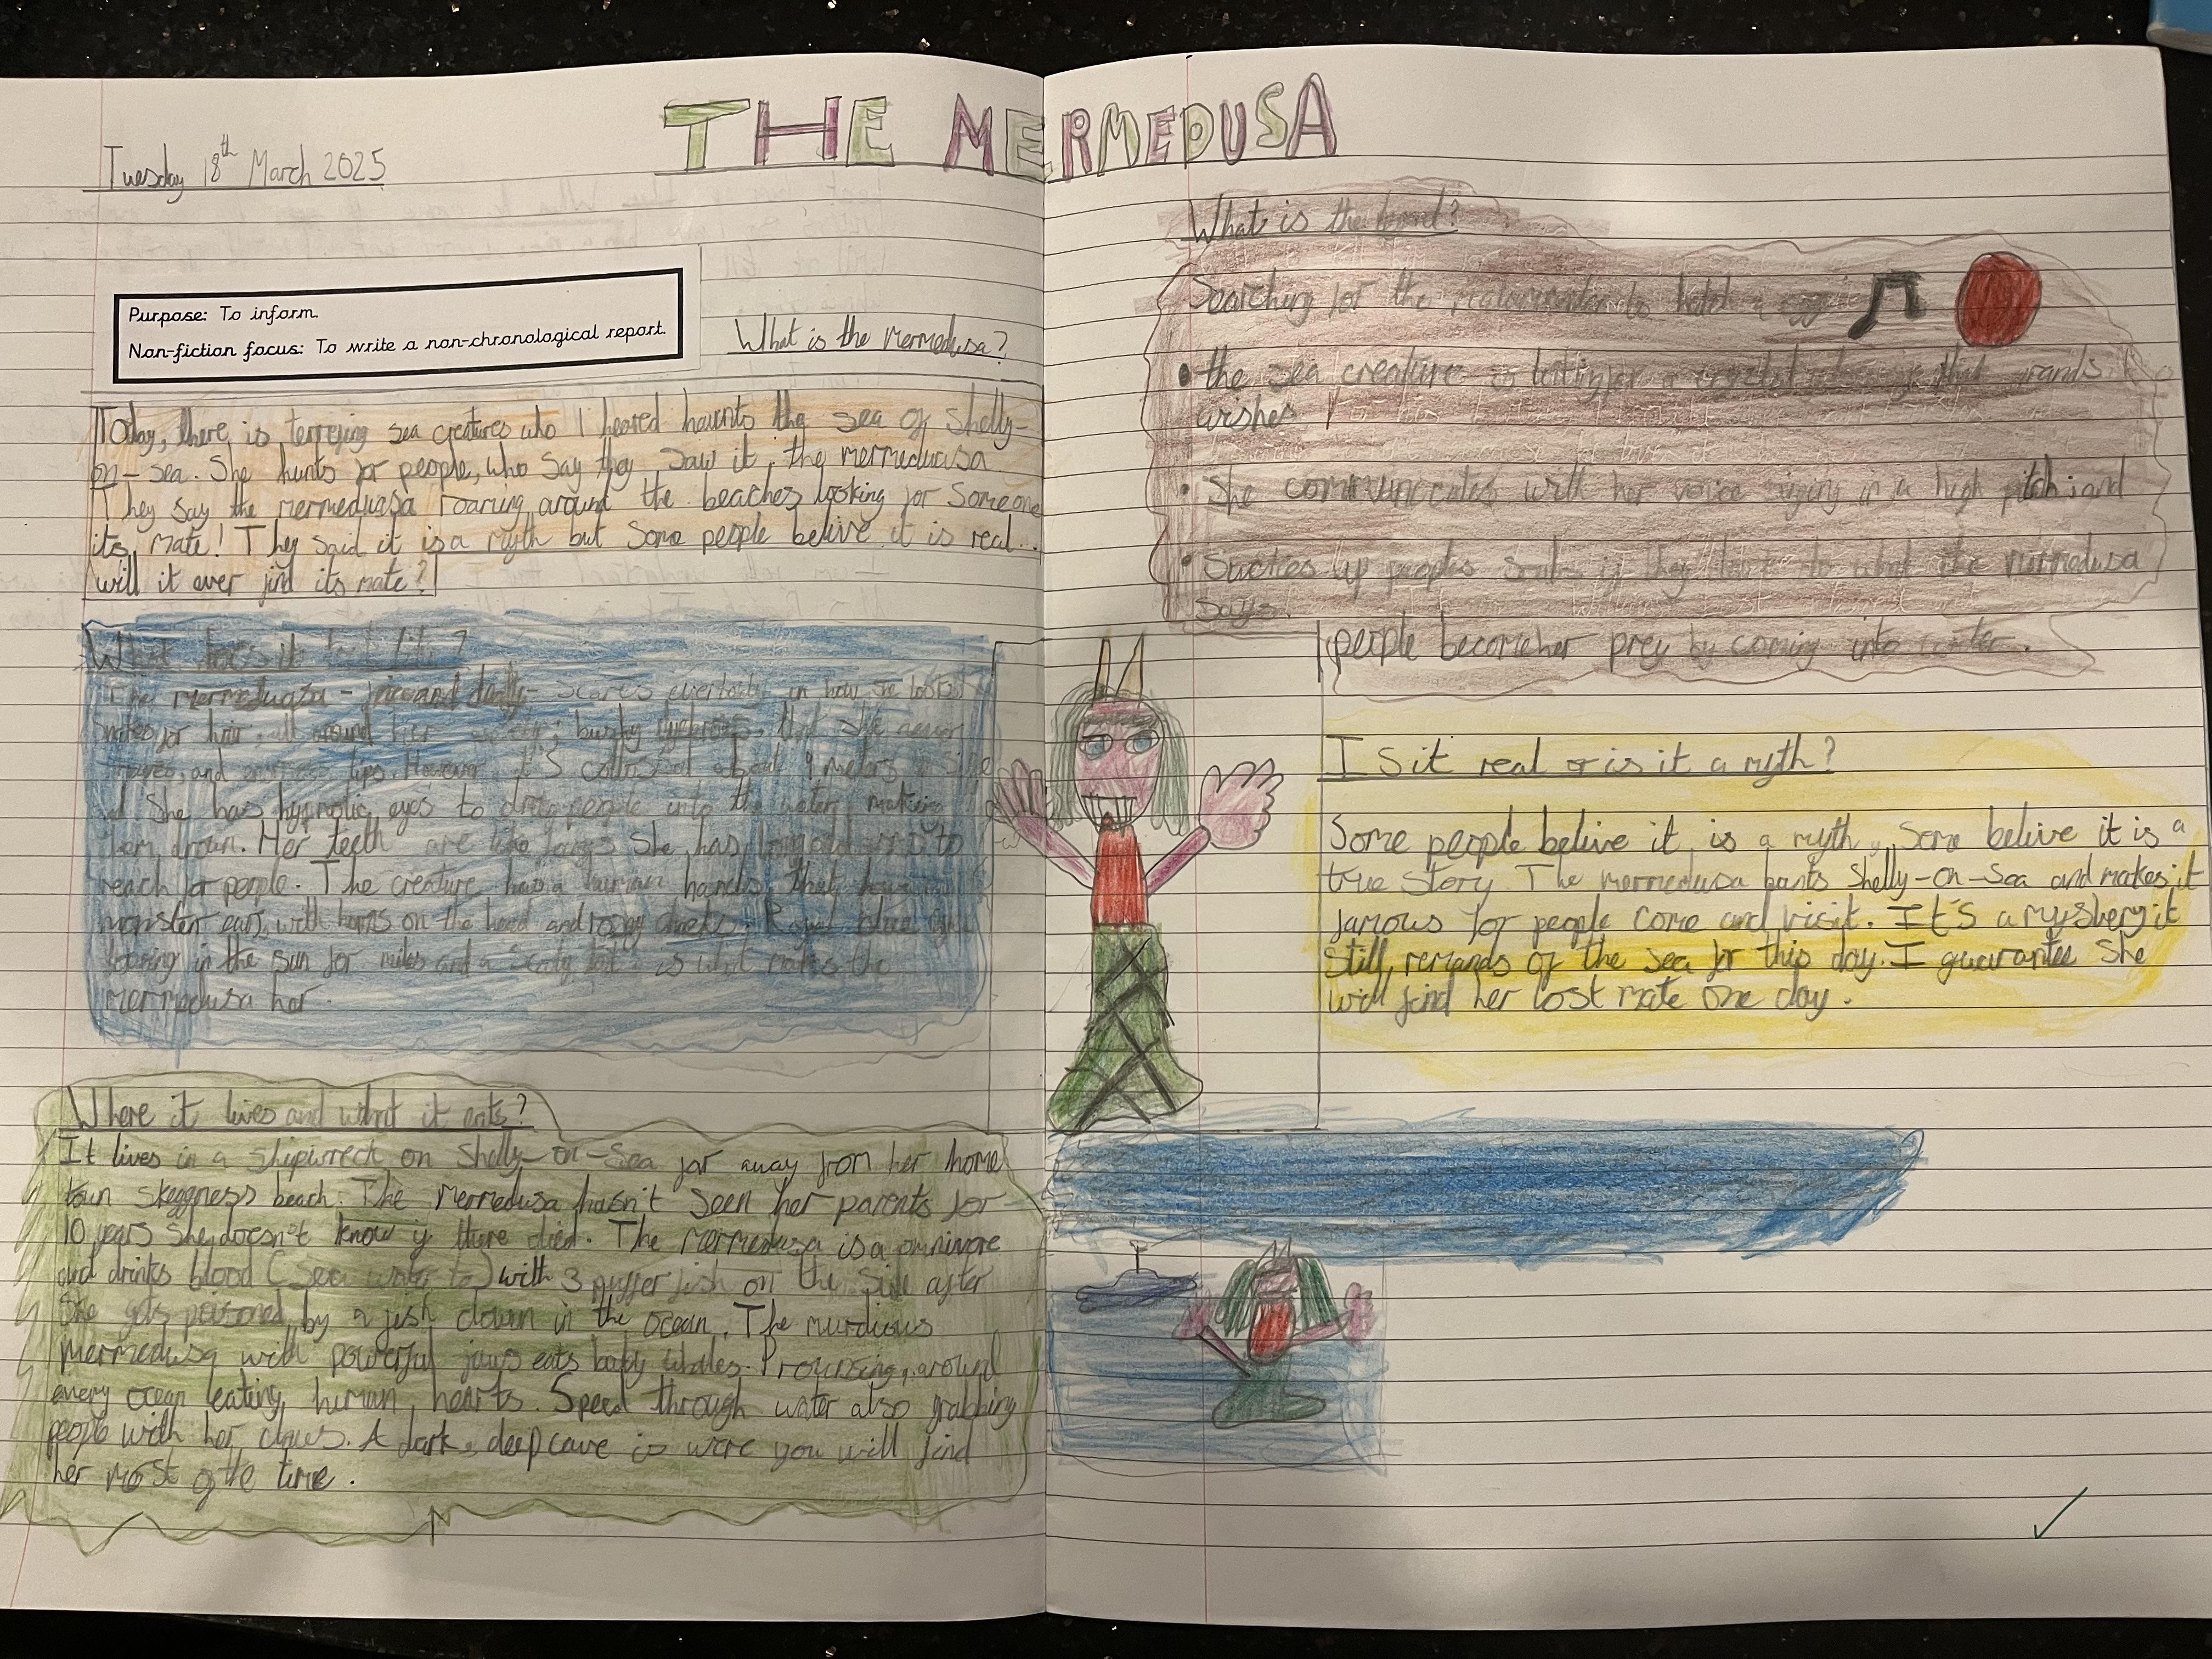 THE MERMEDUSA
Tuesday 18th March 2025
Purpose: To inform.
Non-fiction focus: To write a non-chronological report.
What is the Mermedusa?
Today, there is terrejing sea creatures who I heared haunts the sea of Shelly-
on-sea. She hunts for people, who say they saw it, the mermeduasa.
They say the mermeduasa roaring around the beaches looking for someone
its mate! They said it is a myth but some people belive it is real...
will it ever find its mate?
What does it look like?
The mermeduasa - and - scares everbody in how she looks!
for hair all around her bushy eyebrows, that she never
and lips. However, it's about 9 meters
She has hypnotic eyes to drag people into the water making
them drown. Her teeth are like fangs she has long arms to
reach for people. The creature has a human hands, that
monster ears, with horns on the head and rosy cheeks. Royal blue
in the sun for miles and a scaly tail is what makes the
mermedusa her.
Where it lives and what it eats?
It lives in a shipwreck on Shelly-on-Sea far away from her home
town skeggness beach. The Mermedusa hasn't seen her parents for
10 years she doesn't know if there died. The mermedusa is a omnivore
and drinks blood (sea water to) with 3 puffer fish on the side after
She gets poisoned by a fish down in the ocean. The murdious
mermedusa with powerful jaws eats baby whales. Prowrsing around
every ocean eating human hearts. Speed through water also grabbing
people with her claws. A dark, deep cave is were you will find
her most of the time.
What is the
Searching for the to hatch a
• the sea creature is a that grands
wishes
• She communicates with her voice singing in a high pitch; and
• up peoples souls if they to what the mermedusa
says.
people become her prey by coming into water.
Is it real or is it a myth?
Some people belive it is a myth, Some belive it is a
true story. The mermedusa haunts Shelly-on-Sea and makes it
famous for people come and visit. It's a mysbery it
still remands of the sea for this day. I guarantee she
will find her lost mate one day.